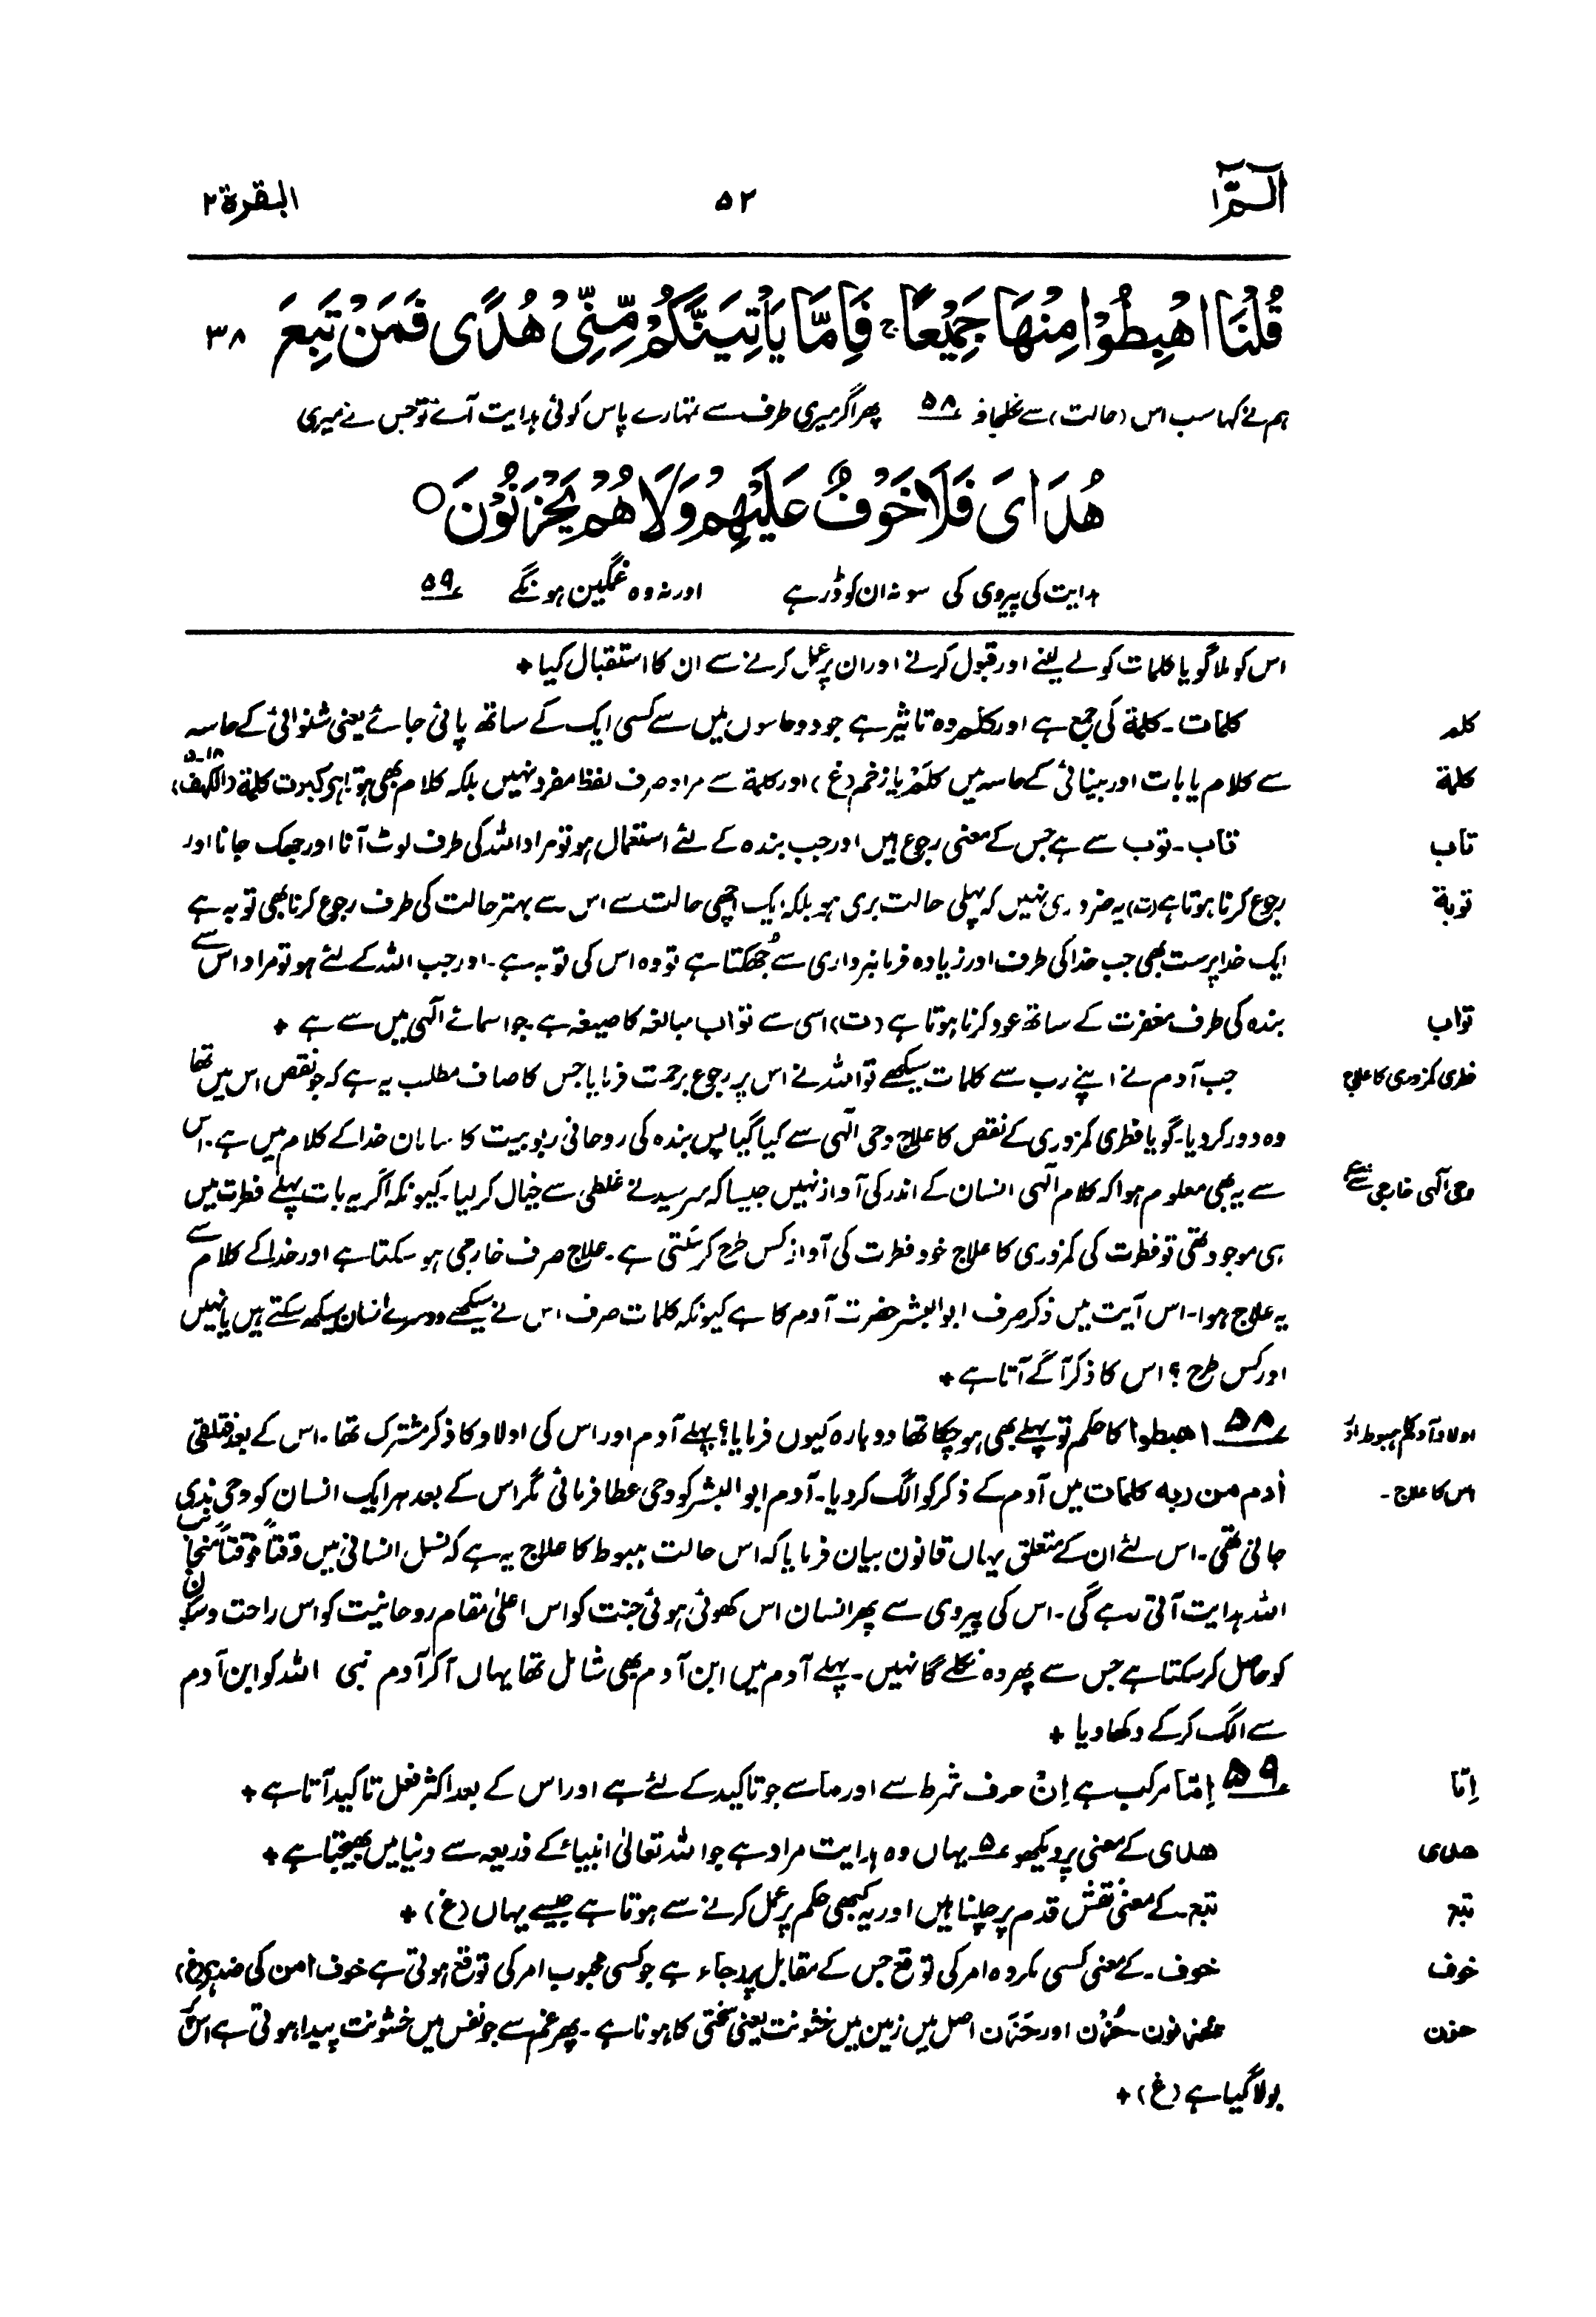 الٓمّٓ ١
٥٢
البقرة ٢
قُلْنَا اهْبِطُوْا مِنْهَا جَمِيْعًا ۚ فَاِمَّا يَاْتِيَنَّكُمْ مِّنِّىْ هُدًى فَمَنْ تَبِعَ ٣٨
ہم نے کہا سب اس (حالت) سے نکل جاؤ ٥٨ پھر اگر میری طرف سے تمہارے پاس کوئی ہدایت آئے تو جس نے میری
هُدَاىَ فَلَا خَوْفٌ عَلَيْهِمْ وَلَا هُمْ يَحْزَنُوْنَ ○
ہدایت کی پیروی کی سو نہ ان کو ڈر ہے اور نہ وہ غمگین ہونگے ٥٩
اس کو ملا گویا کلمات کو لے لینے اور قبول کرنے اور ان پر عمل کرنے سے ان کا استقبال کیا +
کلمہ
کلمات۔ کلمة کی جمع ہے اور کلم وہ تاثیر ہے جو دو حاسوں میں سے کسی ایک کے ساتھ پائی جائے یعنی شنوائی کے حاسہ
کلمة
سے کلام یا بات اور بینائی کے حاسہ میں کَلْمٌ یا زخم (غ) اور کلمة سے مراد صرف لفظ مفرد نہیں بلکہ کلام بھی ہوتا ہے کبرت کلمة (الکہف ١٨-٥)
تاب
تاب۔ توب سے ہے جس کے معنی رجوع ہیں اور جب بندہ کے لئے استعمال ہو تو مراد اللہ کی طرف لوٹ آنا اور جھک جانا اور
توبة
رجوع کرنا ہوتا ہے (ت) یہ ضروری نہیں کہ پہلی حالت بری ہو بلکہ ایک اچھی حالت سے اس سے بہتر حالت کی طرف رجوع کرنا بھی توبہ ہے
ایک خدا پرست بھی جب خدا کی طرف اور زیادہ فرمانبرداری سے جُھکتا ہے تو وہ اس کی توبہ ہے۔ اور جب اللہ کے لئے ہو تو مراد اس سے
تواب
بندہ کی طرف مغفرت کے ساتھ عود کرنا ہوتا ہے (ت) اسی سے توّاب مبالغہ کا صیغہ ہے جو اسمائے الٰہی میں سے ہے +
فطری کمزوری کا علاج
جب آدم نے اپنے رب سے کلمات سیکھے تو اللہ نے اس پر رجوع برحمت فرمایا جس کا صاف مطلب یہ ہے کہ جو نقص اس میں تھا
وہ دور کر دیا۔ گویا فطری کمزوری کے نقص کا علاج وحی الٰہی سے کیا گیا پس بندہ کی روحانی ربوبیت کا سامان خدا کے کلام میں ہے۔ اس
وحی الٰہی خارجی شے ہے
سے یہ بھی معلوم ہوا کہ کلام الٰہی انسان کے اندر کی آواز نہیں جیسا کہ سرسید نے غلطی سے خیال کر لیا۔ کیونکہ اگر یہ بات پہلے فطرت میں
ہی موجود تھی تو فطرت کی کمزوری کا علاج خود فطرت کی آواز کس طرح کر سکتی ہے۔ علاج صرف خارجی ہو سکتا ہے اور خدا کے کلام سے
یہ علاج ہوا۔ اس آیت میں ذکر صرف ابوالبشر حضرت آدم کا ہے کیونکہ کلمات صرف اس نے سیکھے دوسرے انسان سیکھ سکتے ہیں یا نہیں
اور کس طرح؟ اس کا ذکر آگے آتا ہے +
اولاد آدم کا ہبوط اور
٥٨ اھبطوا کا حکم تو پہلے بھی ہو چکا تھا دوبارہ کیوں فرمایا؟ پہلے آدم اور اس کی اولاد کا ذکر مشترک تھا۔ اس کے بعد فتلقی
اس کا علاج۔
اٰدم من ربه کلمات میں آدم کے ذکر کو الگ کر دیا۔ آدم ابوالبشر کو وحی عطا فرمائی مگر اس کے بعد ہر ایک انسان کو وحی نہ دی
جانی تھی۔ اس لئے ان کے متعلق یہاں قانون بیان فرمایا کہ اس حالت ہبوط کا علاج یہ ہے کہ نسل انسانی میں وقتاً فوقتاً منجانب
اللہ ہدایت آتی رہے گی۔ اس کی پیروی سے پھر انسان اس کھوئی ہوئی جنت کو اس اعلیٰ مقام روحانیت کو اس راحت و سکون
کو حاصل کر سکتا ہے جس سے پھر وہ نکلے گا نہیں۔ پہلے آدم میں ابن آدم بھی شامل تھا یہاں آکر آدم نبی اللہ کو ابن آدم
سے الگ کرکے دکھا دیا +
اِمّا
٥٩ اِمّا مرکب ہے اِنْ حرف شرط سے اور ما سے جو تاکید کے لئے ہے اور اس کے بعد اکثر فعل تاکید آتا ہے +
ھدی
ھدای کے معنی پر دیکھو ٥ یہاں وہ ہدایت مراد ہے جو اللہ تعالیٰ انبیاء کے ذریعہ سے دنیا میں بھیجتا ہے +
تبع
تبع۔ کے معنی نقش قدم پر چلنا ہیں اور یہ کبھی حکم پر عمل کرنے سے ہوتا ہے جیسے یہاں (غ) +
خوف
خوف۔ کے معنی کسی مکروہ امر کی توقع جس کے مقابل پر رجاء ہے جو کسی محبوب امر کی توقع ہوتی ہے خوف امن کی ضد ہے (غ)
حزن
یحزنون۔ حُزْن اور حَزَن اصل میں زمین میں خشونت یعنی سختی کا ہونا ہے۔ پھر غم سے جو نفس میں خشونت پیدا ہوتی ہے اس پر
بولا گیا ہے (غ) +